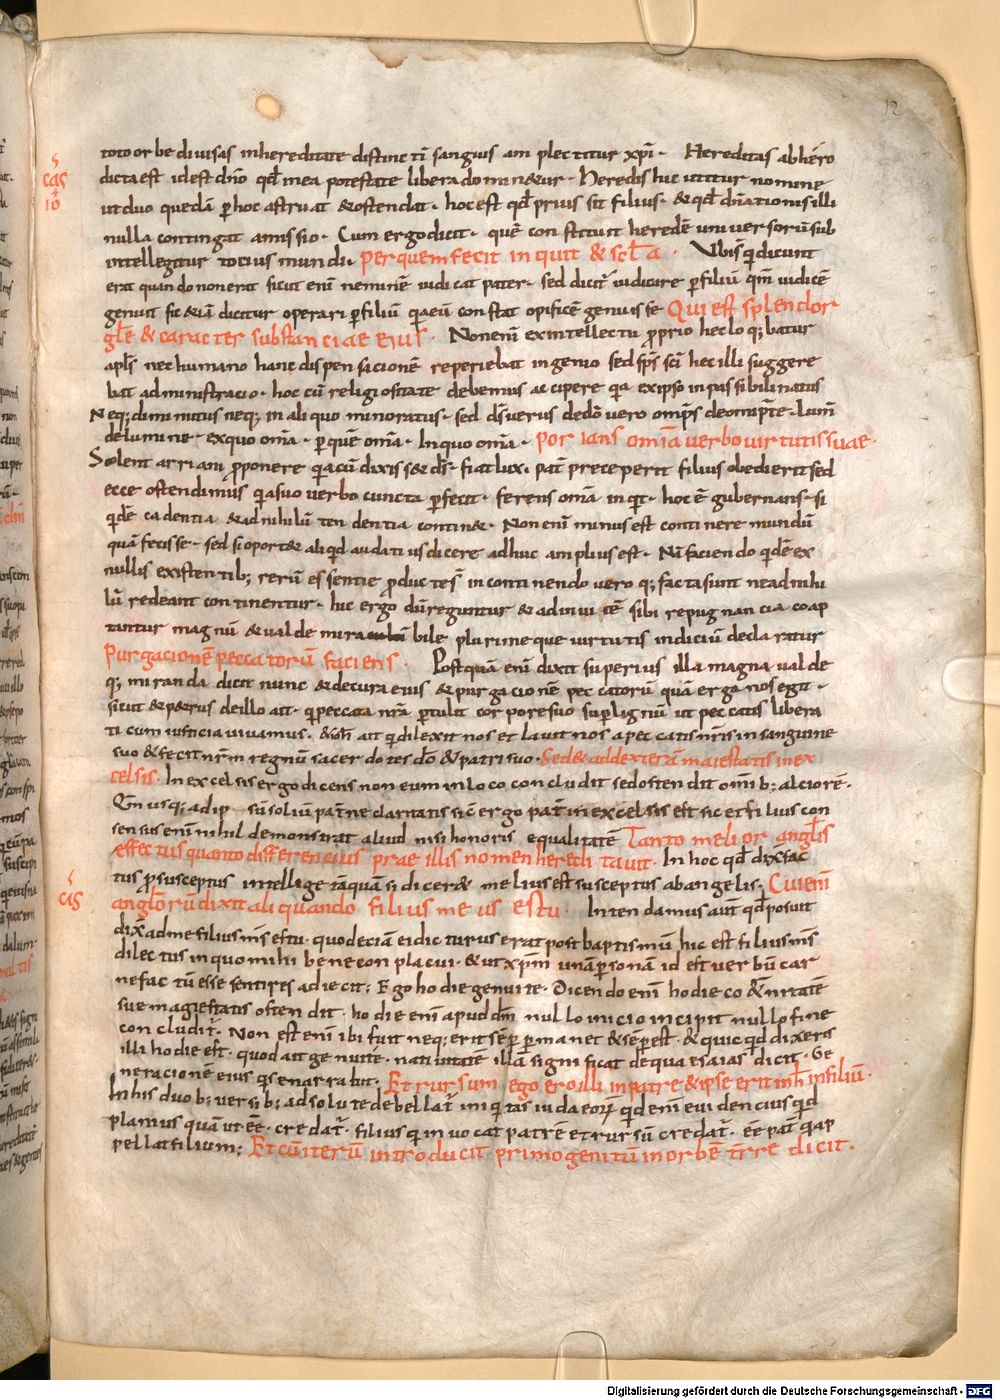 12
toto orbe diuisas inhereditate distincti sanguis amplectitur xpi. Hereditas ab hero
cas
dicta est id est dno qd mea potestate libera domin&ur. Heredis huc utitur nomine
10
ut duo quedā p hoc astruat & ostendat. hoc est qd prius sit filius. & qd dnationis illi
nulla contingat amissio. Cum ergo dicit. quē constituit heredē uniuersorū sub
intellegitur totius mundi. per quem fecit inquit & scła. Vbi sq dicunt
erat quando non erat sicut enī neminē iudicat pater. sed dicit iudicare p filiū qm iudicē
genuit sic & iā dicitur operari p filiū quia eū constat opificē genuisse Qui est splendor
głe & caracter substanciae eius. Non enī ex intellectu pprio hec loq; batur
apls nec humano hanc dispensacionē reperiebat ingenio sed sps sci hec illi suggere
bat administracio. hoc cū religiositate debemus accipere qa ex ipso inpassibili natus
Neq; diminutus neq; in aliquo minoratus. sed ds uerus de dō uero omps de omipte. Lum
de lumine. ex quo omā. p quē omā. In quo omā. porians omā uerbo uirtutis suae.
Solent arriani pponere qa cū dixiss& ds. fiat lux. pat preceperit filius obedierit sed
ecce ostendimus quia suo uerbo cuncta pfecit. ferens omā inqt. hoc ē gubernans. si
qdē cadentia & ad nihilū tendentia contin&. Non enī minus est continere mundū
quā fecisse. sed si oport& aliqd audatius dicere adhuc amplius est. Nā faciendo qdē ex
nullis existentib; rerū essentie pductes in continendo uero q; facta sunt ne ad nihi
lū redeant continentur. hic ergo dū reguntur & ad inuicē sibi repugnancia coap
tantur magnū & ualde mirabile plurimeque uirtutis indiciū declaratur
Purgacionē peccatorū faciens. Postquā enī dixit superius illa magna ualde
q; miranda dicit nunc & de cura eius & purgacionē peccatorū quā erga nos egit.
sicut & p&rus de illo ait. q peccata nra ptulit corpore suo sup lignū ut peccatis libera
ti cum iusticia uiuamus. & ioh ait qi dilexit nos et lauit nos a peccatis nris in sanguine
suo & fecit nrm regnū sacerdotes dō & patri suo. Sed& ad dexterā maiestatis in ex
celsis. In excelsis ergo dicens non eum in loco concludit sed ostendit omib; alciorē.
Qm usq; ad ip sū soliū patne claritatis sic ergo pat in excelsis est sic et filius con
sensus enī nihil demonstrat aliud nisi honoris equalitatē Tanto melior angłis
effectus quanto differencius prae illis nomen hereditauit. In hoc qd dix fac
tus p susceptus intellige tāquā si dicer& melius est susceptus ab angelis. Cui enī
cis
angłorū dixit aliquando filius meus es tu. Intendamus aut qd posuit
dix ad me filius ms es tu. quod eciā ei dicturus erat post baptismū hic est filius ms
dilectus in quo mihi bene conplacui. & ut xpm unā psonā id est uerbū car
ne factū esse sentires adiecit; Ego hodie genui te. Dicendo enī hodie co&nitatē
sue magiestatis ostendit. hodie enī apud dm nullo inicio incipit nullo fine
concludit. Non est enī ibi fuit neq; erit sep pman& & sep est. & quicqd dixeris
illi hodie est. quod ait genui te. natiuitatē illā significat de qua esaias dicit. Ge
neracionē eius qs enarrabit. Et rursum ego ero illi in patre & ipse erit mh in filiū.
In his duob; uersib; adsolute debellat iniqitas iudaeorꝝ qd enī euidencius qd
planius quā ut ēē. credat. filius q inuocat patrē et rursū credat. ēē pat q ap
pellat filium; Et cū iterū introducit primogenitū in orbe trre dicit.
Digitalisierung gefördert durch die Deutsche Forschungsgemeinschaft - DFG